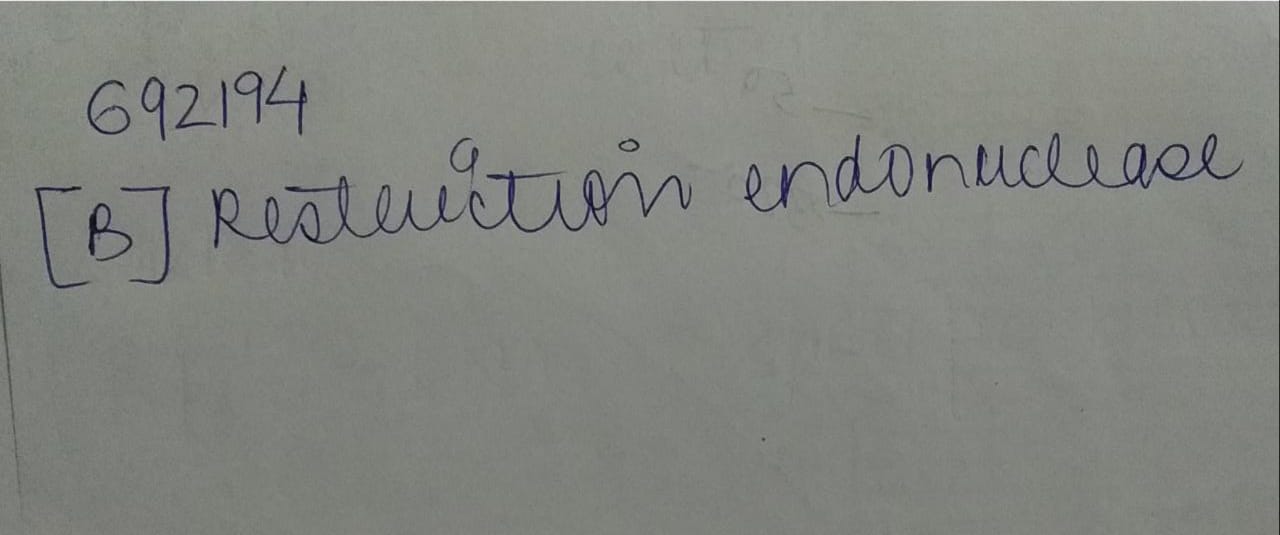 692194
[B] Restriction endonuclease